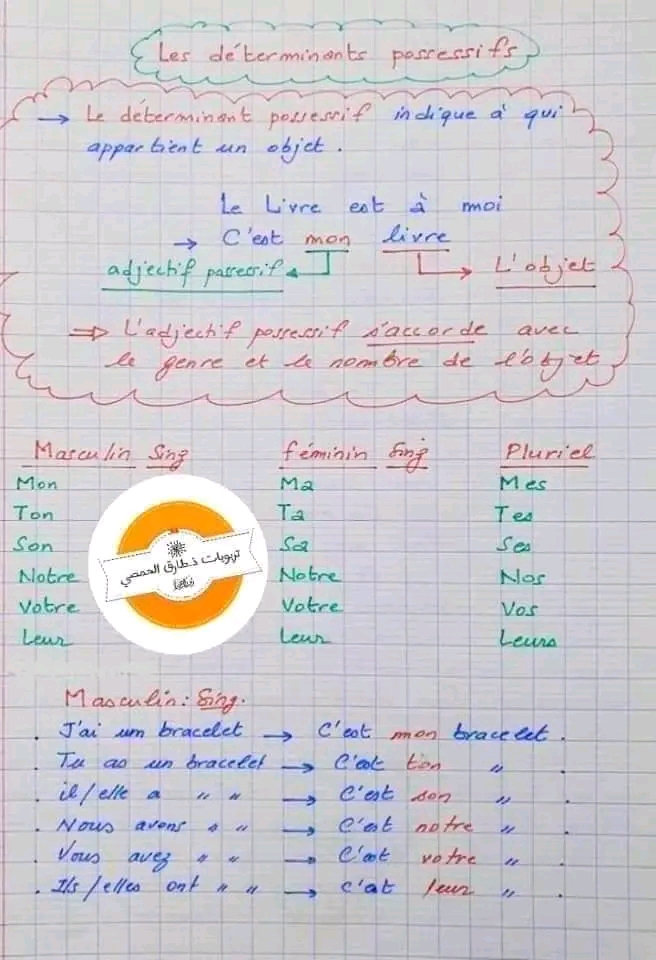 Les déterminants possessifs
→ Le déterminant possessif indique à qui
appartient un objet.
Le Livre est à moi
→ C'est mon livre
adjectif possessif L'objet
⇒ L'adjectif possessif s'accorde avec
le genre et le nombre de l'objet
Masculin Sing féminin Sing Pluriel
Mon Ma Mes
Ton Ta Tes
Son Sa Ses
Notre Notre Nos
Votre Votre Vos
Leur Leur Leurs
تربويات ذ.طارق الحمصي
Masculin: Sing.
. J'ai um bracelet → C'est mon bracelet.
. Tu as un bracelet → C'est ton " .
. il/elle a " " → C'est son " .
. Nous avons " " → C'est notre " .
. Vous avez " " → C'est votre " .
. Ils/elles ont " " → c'est leur " .